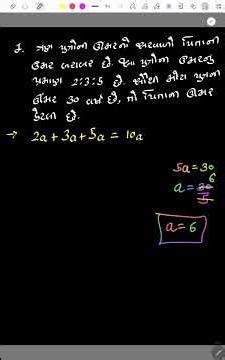 1. ત્રણ પુત્રોની ઉંમરનો સરવાળો પિતાની
ઉંમર બરાબર છે. આ પુત્રોની ઉંમરનું
પ્રમાણ 2:3:5 છે. સૌથી મોટા પુત્રની
ઉંમર 30 વર્ષ છે, તો પિતાની ઉંમર
કેટલી છે.
→ 2a + 3a + 5a = 10a
5a = 30
6
a = 30
5
a = 6